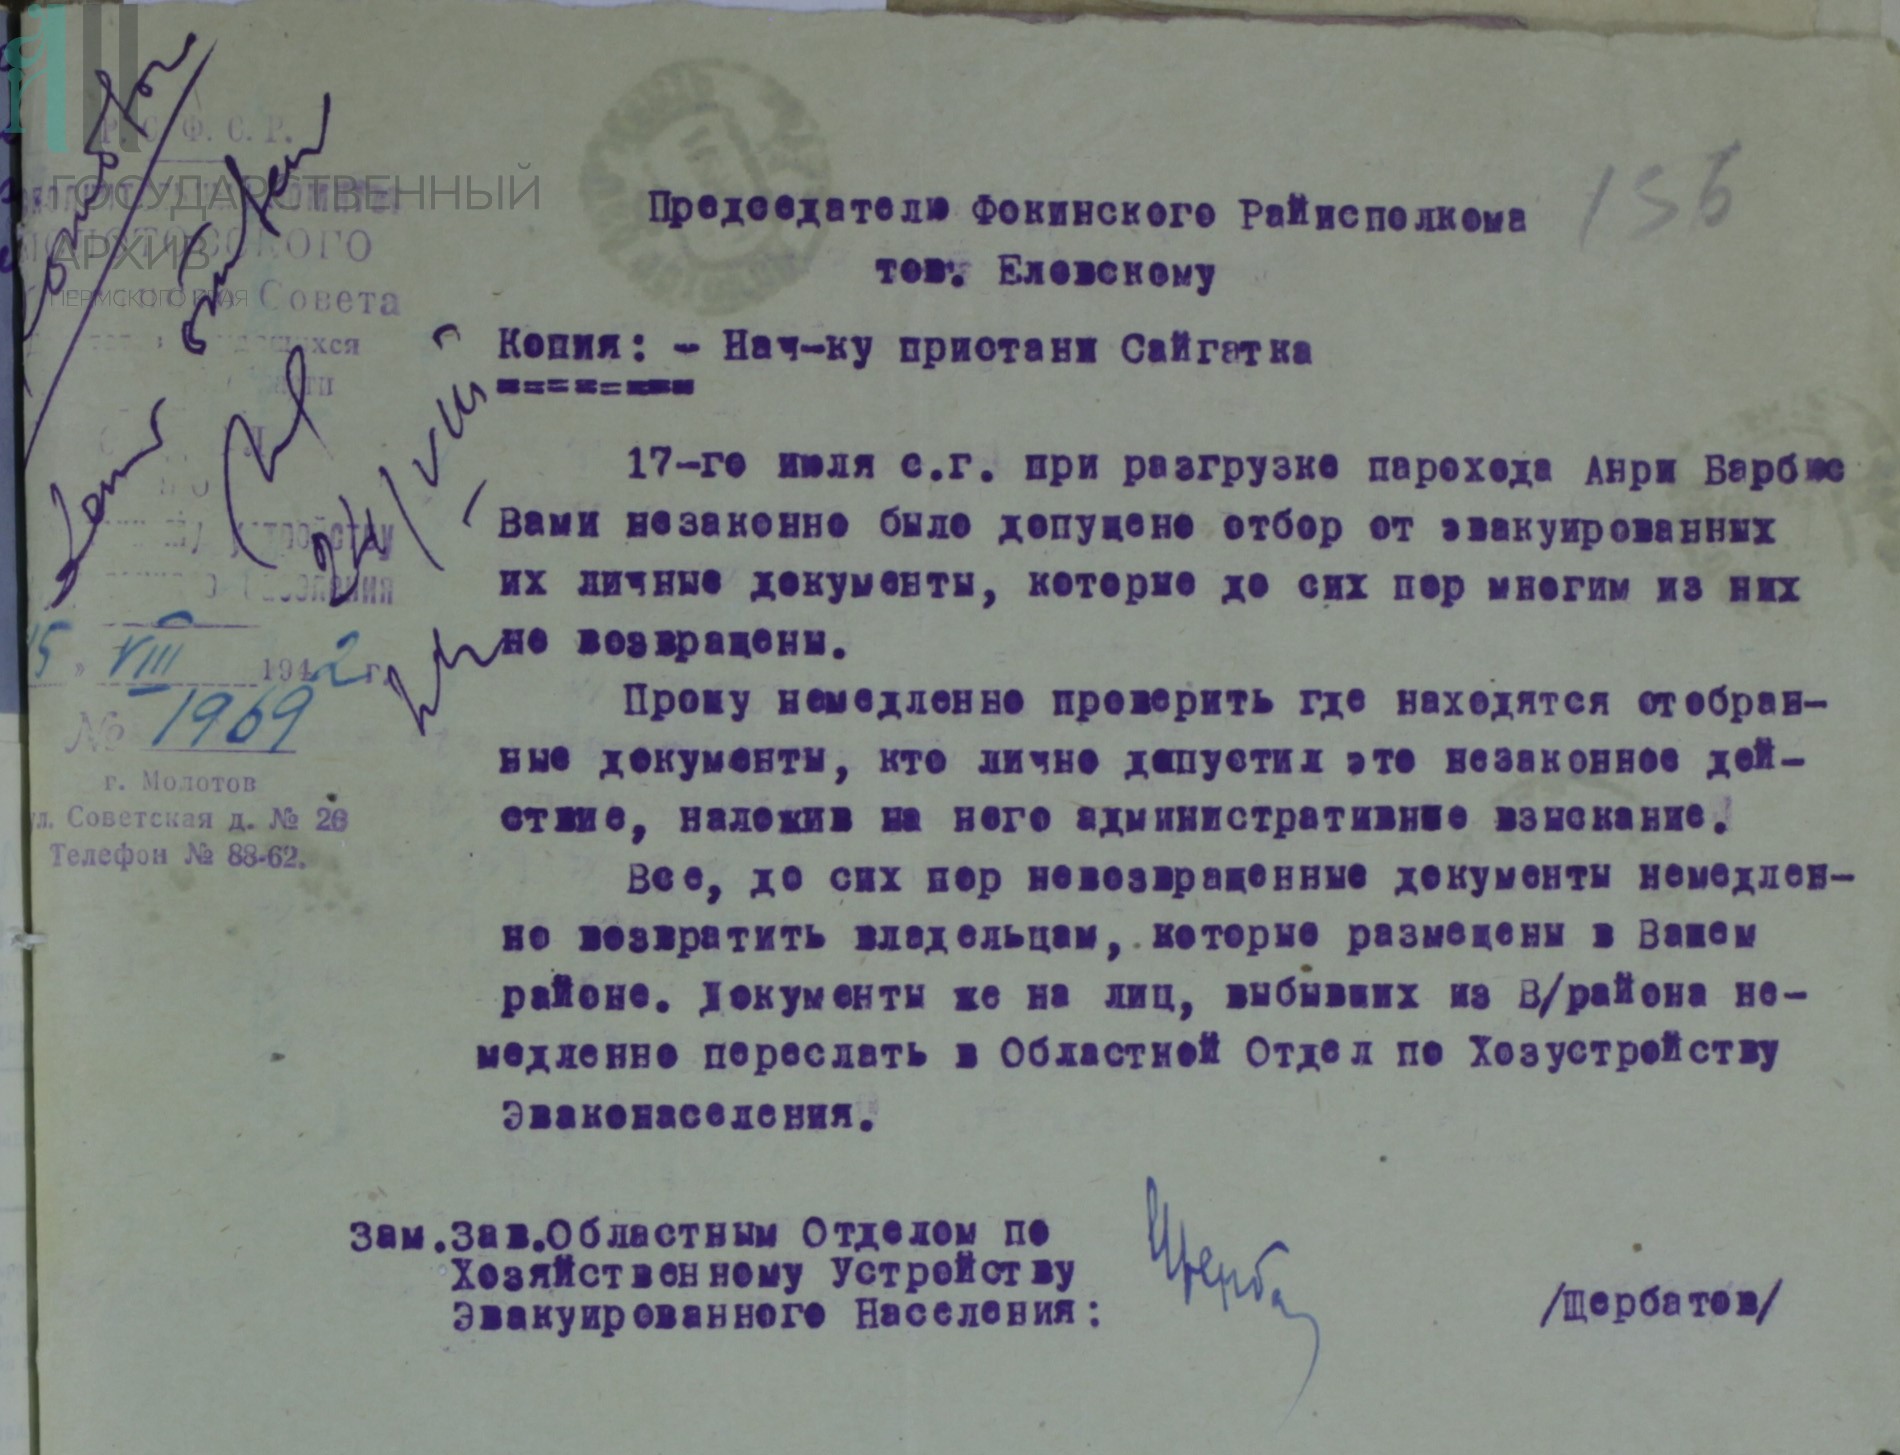 ГОСУДАРСТВЕННЫЙ
АРХИВ
ПЕРМСКОГО КРАЯ
Р. С. Ф. С. Р.
Совета
15 » VIII 1942 г.
№ 1969
г. Молотов
ул. Советская д. № 26
Телефон № 88-62.
24/VIII
156
Председателю Фокинского Райисполкома
тов. Еловскому
Копия: - Нач-ку пристани Сайгатка
17-го июля с.г. при разгрузке парохода Анри Барбюс
Вами незаконно было допущено отбор от эвакуированных
их личные документы, которые до сих пор многим из них
не возвращены.
Прошу немедленно проверить где находятся отобран-
ные документы, кто лично допустил это незаконное дей-
ствие, наложив на него административние взыскание.
Все, до сих пор невозвращенные документы немедлен-
но возвратить владельцам, которые размещены в Вашем
районе. Документы же на лиц, выбывших из В/района не-
медленно переслать в Областной Отдел по Хозустройству
Эваконаселения.
Зам.Зав.Областным Отделом по
Хозяйственному Устройству
Эвакуированного Населения:
/Щербатов/